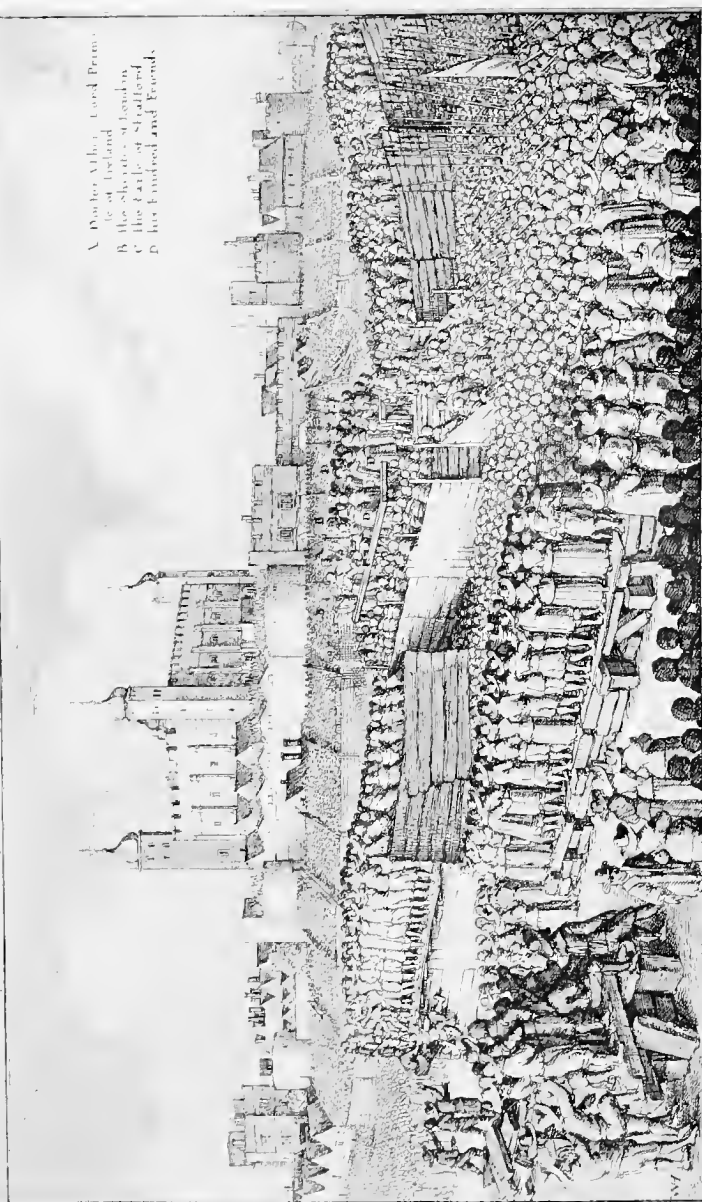 A Doctor Usher Lord Prim-
te of Ireland
B the Sherifes of London
C the Earle of Strafford
D his Kindred and Friends